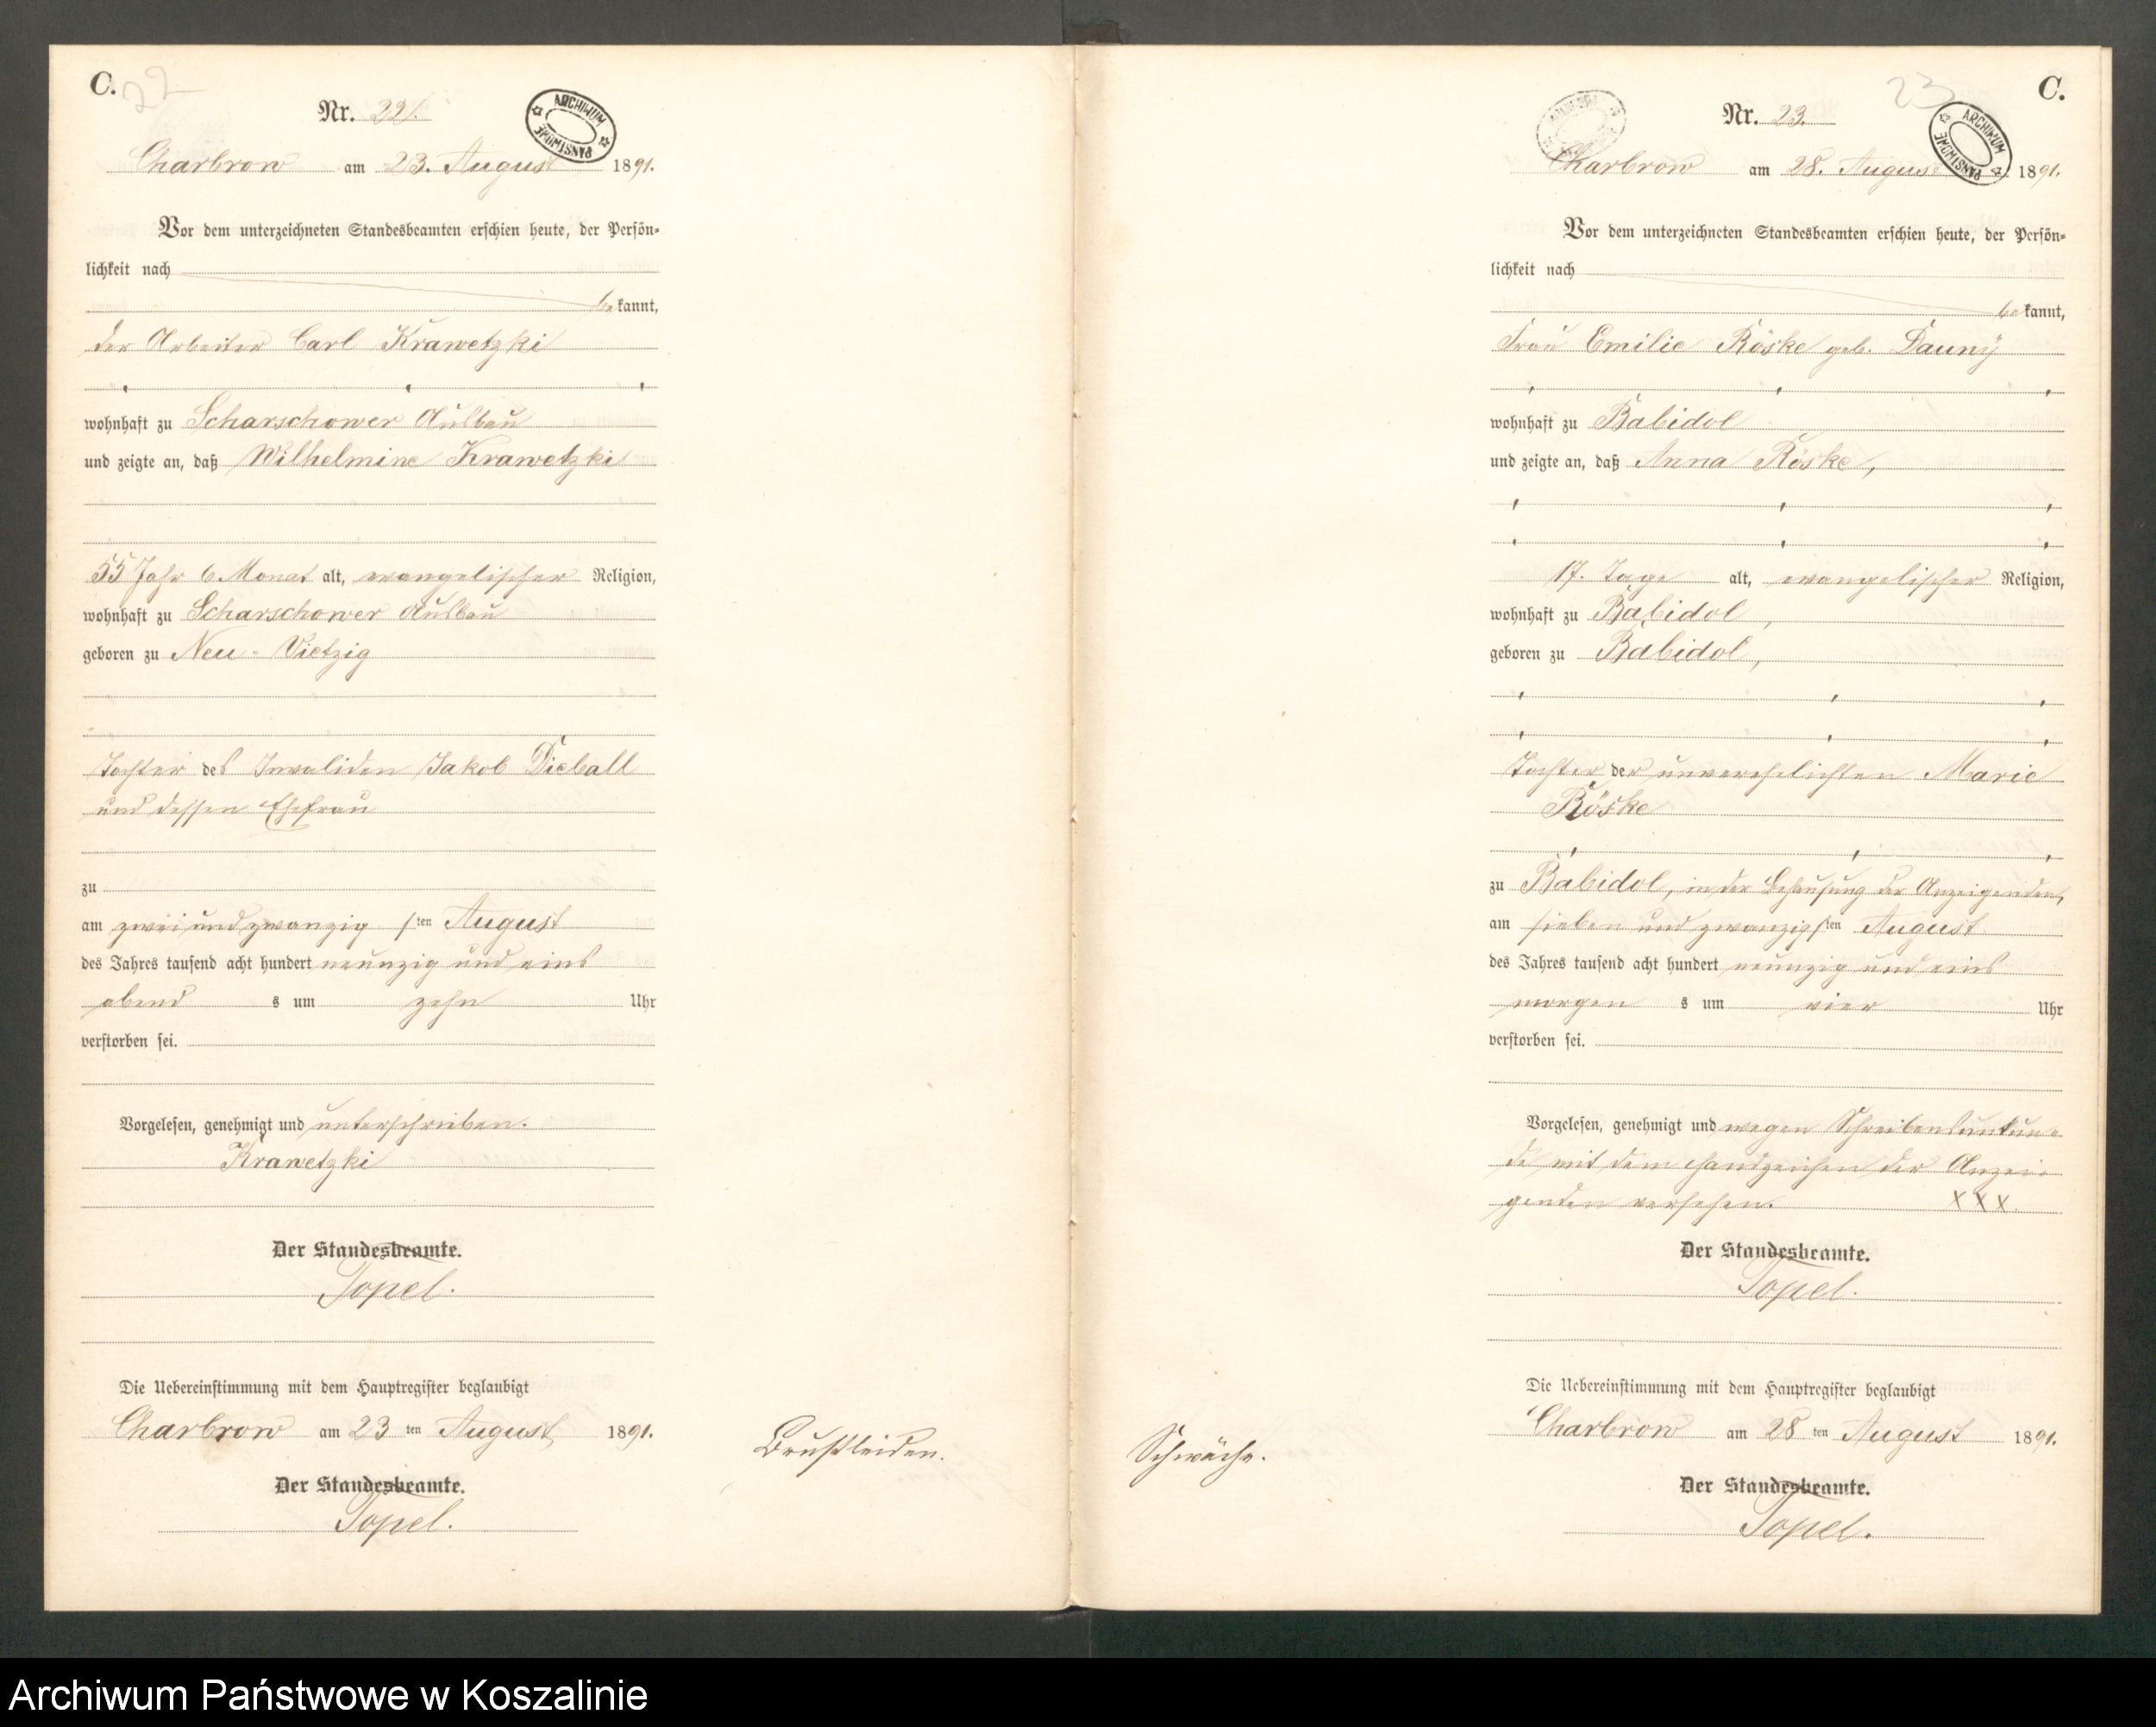 C.
22
Nr. 22.
ARCHIWUM PAŃSTWOWE
Charbrow am 23. August 1891.
Vor dem unterzeichneten Standesbeamten erschien heute, der Persön-
lichkeit nach
bekannt,
der Arbeiter Carl Krawetzki
wohnhaft zu Scharschower Ausbau
und zeigte an, daß Wilhelmine Krawetzki
55 Jahr 6 Monat alt, evangelischer Religion,
wohnhaft zu Scharschower Ausbau
geboren zu Neu-Vietzig
Tochter des Invaliden Jakob Dieball
und dessen Ehefrau
zu
am zwei und zwanzigsten August
des Jahres tausend acht hundert neunzig und eins
abends um zehn Uhr
verstorben sei.
Vorgelesen, genehmigt und unterschrieben.
Krawetzki
Der Standesbeamte.
Topel.
Die Uebereinstimmung mit dem Hauptregister beglaubigt
Charbrow am 23ten August 1891.
Der Standesbeamte.
Topel.
Brustleiden.
C.
23
Nr. 23.
ARCHIWUM PAŃSTWOWE
Charbrow am 28. August 1891.
Vor dem unterzeichneten Standesbeamten erschien heute, der Persön-
lichkeit nach
bekannt,
Frau Emilie Röske geb. Dauny
wohnhaft zu Babidol
und zeigte an, daß Anna Röske,
17. Tage alt, evangelischer Religion,
wohnhaft zu Babidol,
geboren zu Babidol,
Tochter der unverehelichten Marie
Röske
zu Babidol, in der Behausung der Anzeigenden,
am sieben und zwanzigsten August
des Jahres tausend acht hundert neunzig und eins
morgens um vier Uhr
verstorben sei.
Vorgelesen, genehmigt und wegen Schreibensunkun-
de mit dem Handzeichen der Anzei-
genden versehen. XXX.
Der Standesbeamte.
Topel.
Die Uebereinstimmung mit dem Hauptregister beglaubigt
Charbrow am 28ten August 1891.
Der Standesbeamte.
Topel.
Schwäche.
Archiwum Państwowe w Koszalinie